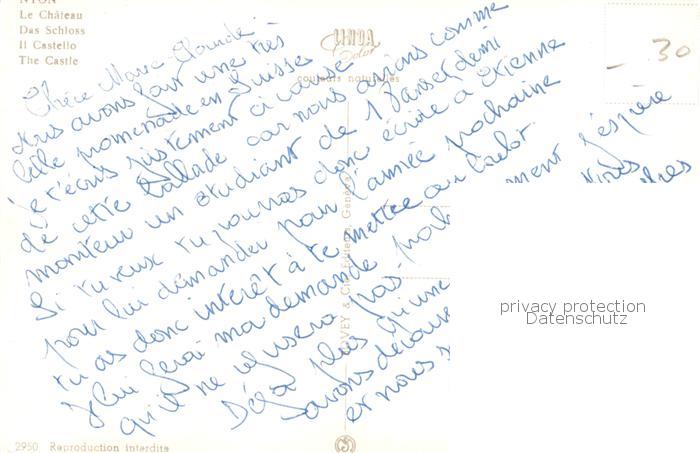 NYON
Le Château
Das Schloss
Il Castello
The Castle
LINDA
Color
couleurs naturelles
30
Chère Marie-Claude
Nous avons fait une très
belle promenade en Suisse
je t'écris justement à cause
de cette ballade car nous avons comme
moniteur un étudiant de 1 Panser demi
Si tu veux tu pourras donc écrire à Etienne
pour lui demander pour l'année prochaine
tu as donc intérêt à te mettre au boulot.
je lui ferai ma demande
qu'il ne refusera pas.
ment j'espère
Déjà plus qu'une
savons
et nous
VEY & Cie Editeurs Genève
privacy protection
Datenschutz
2950 Reproduction interdite